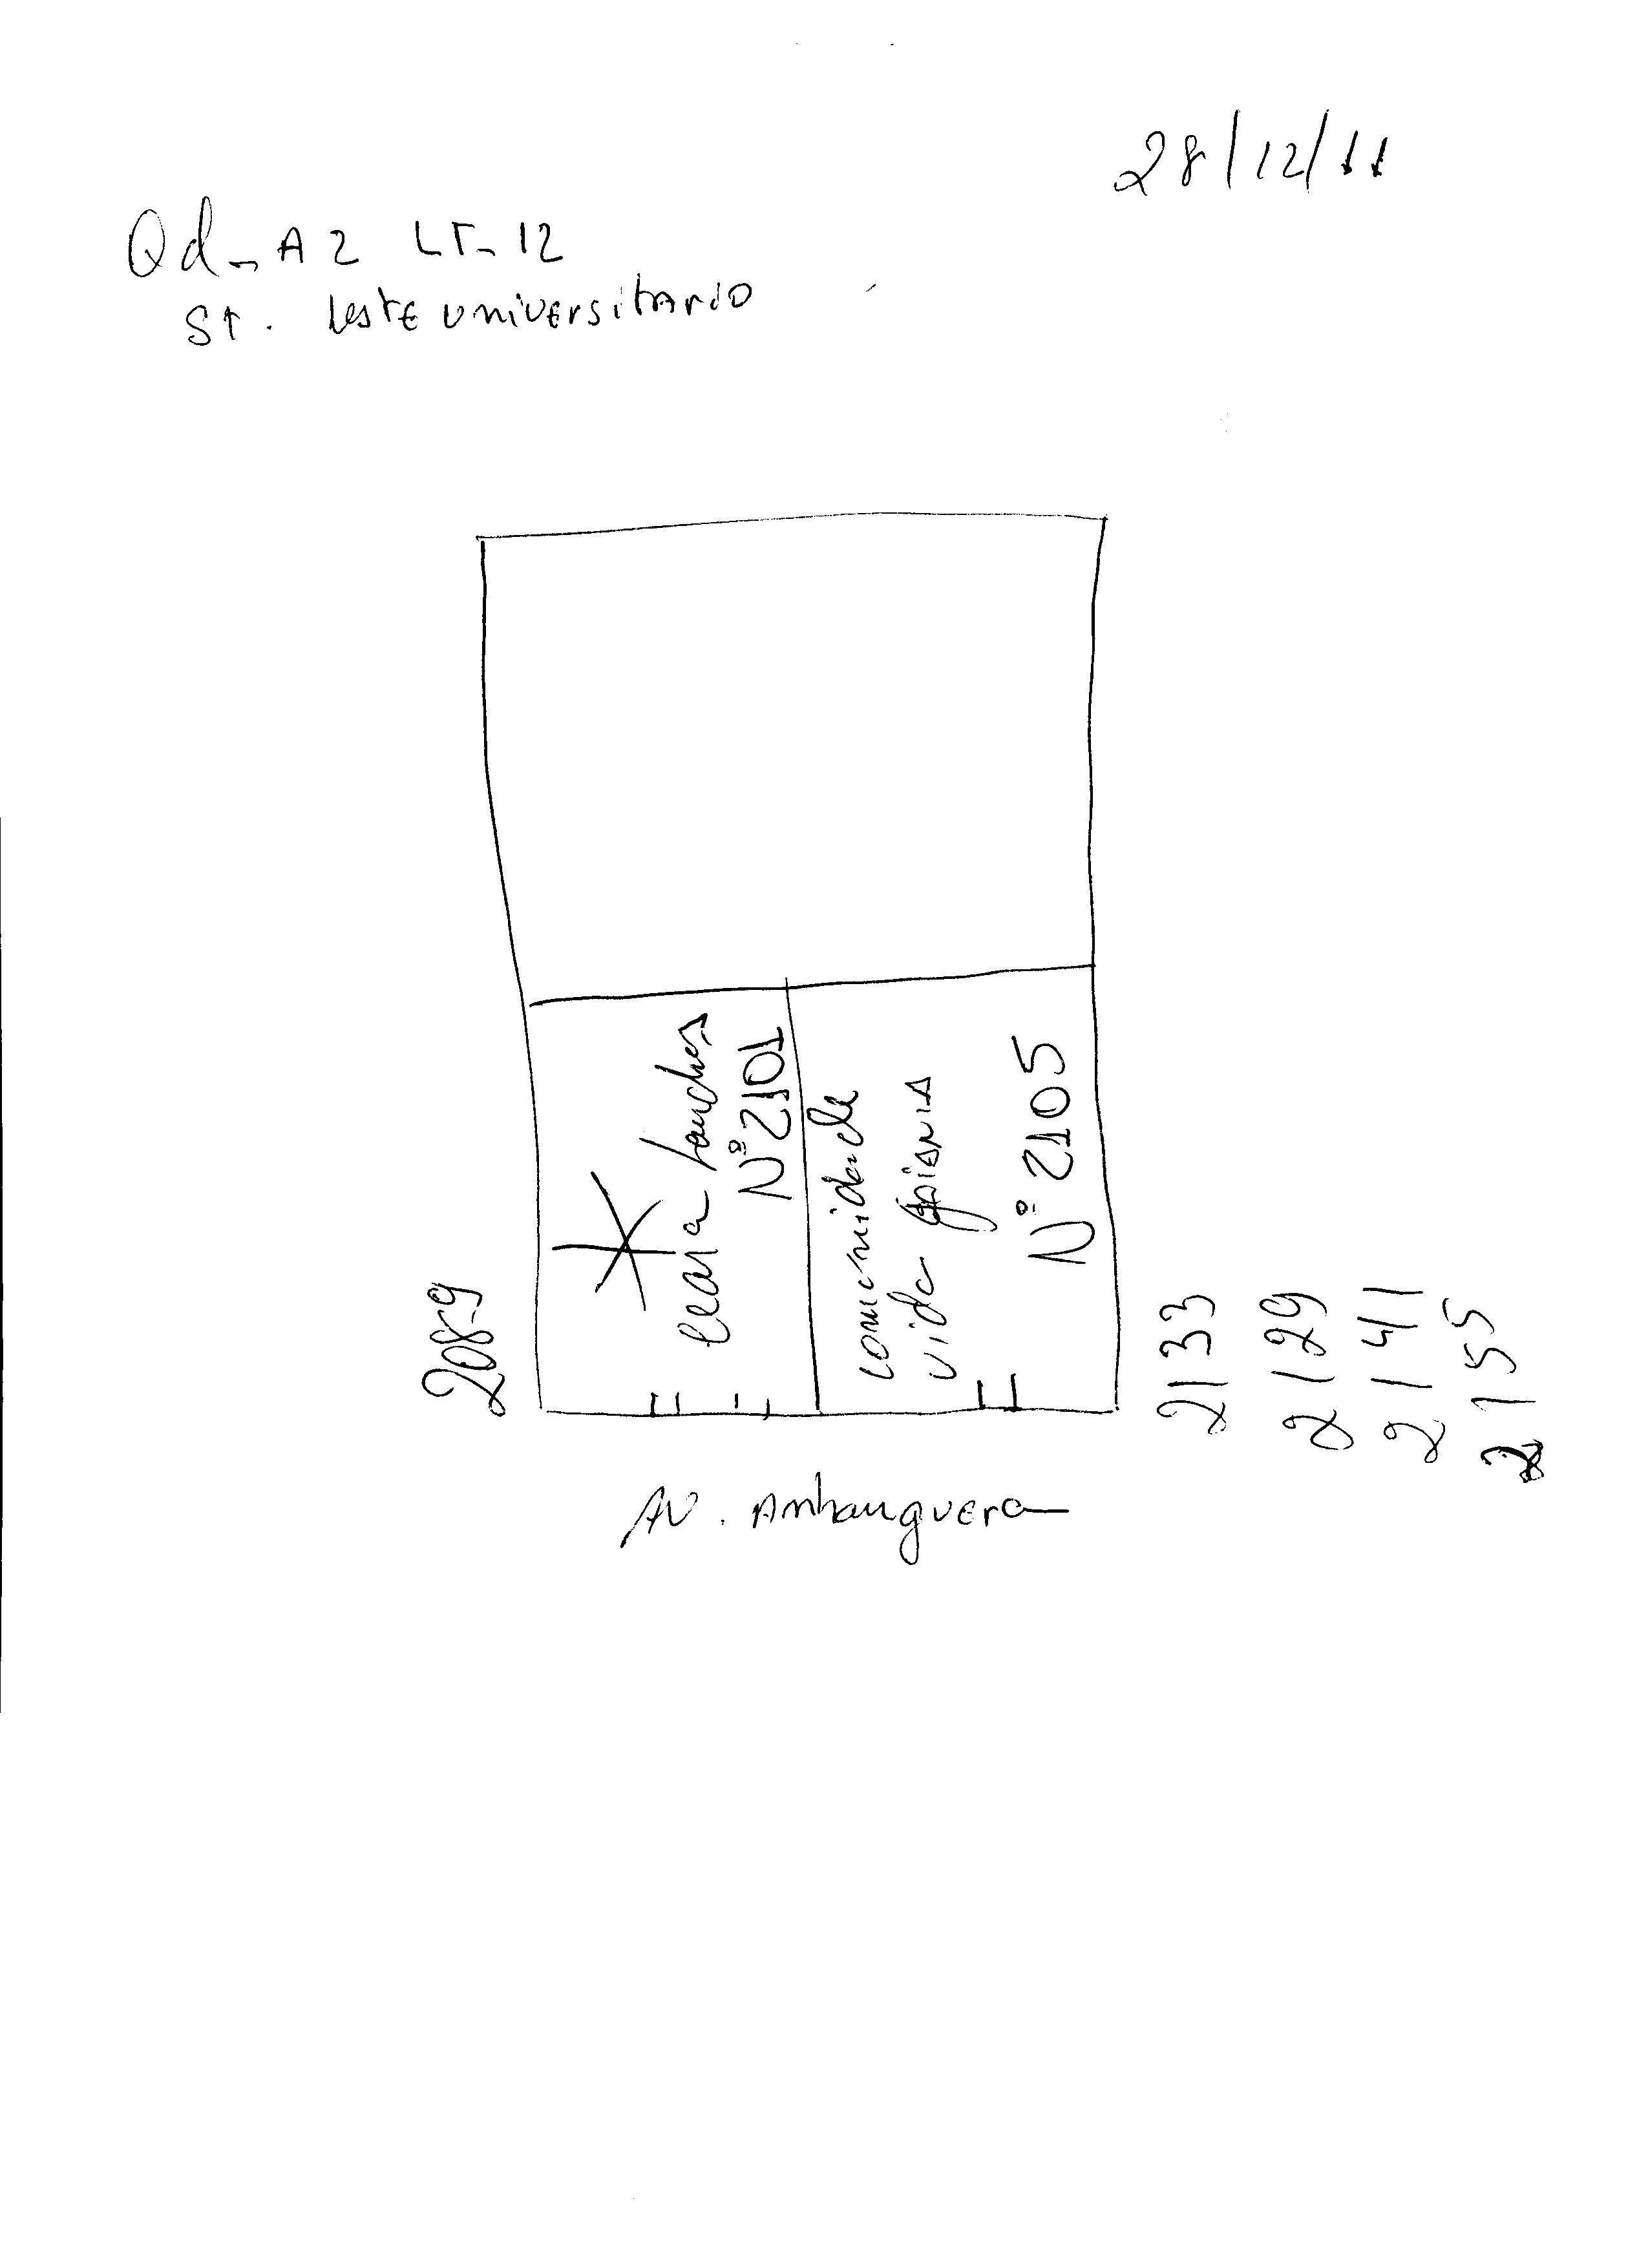 28/12/11
Qd-A2 LT-12
ST. leste universitario
2089
Ceara Lanches
Nº 2101
comunidade
vida
Nº 2105
2133
2129
2141
2155
AV. Anhanguera